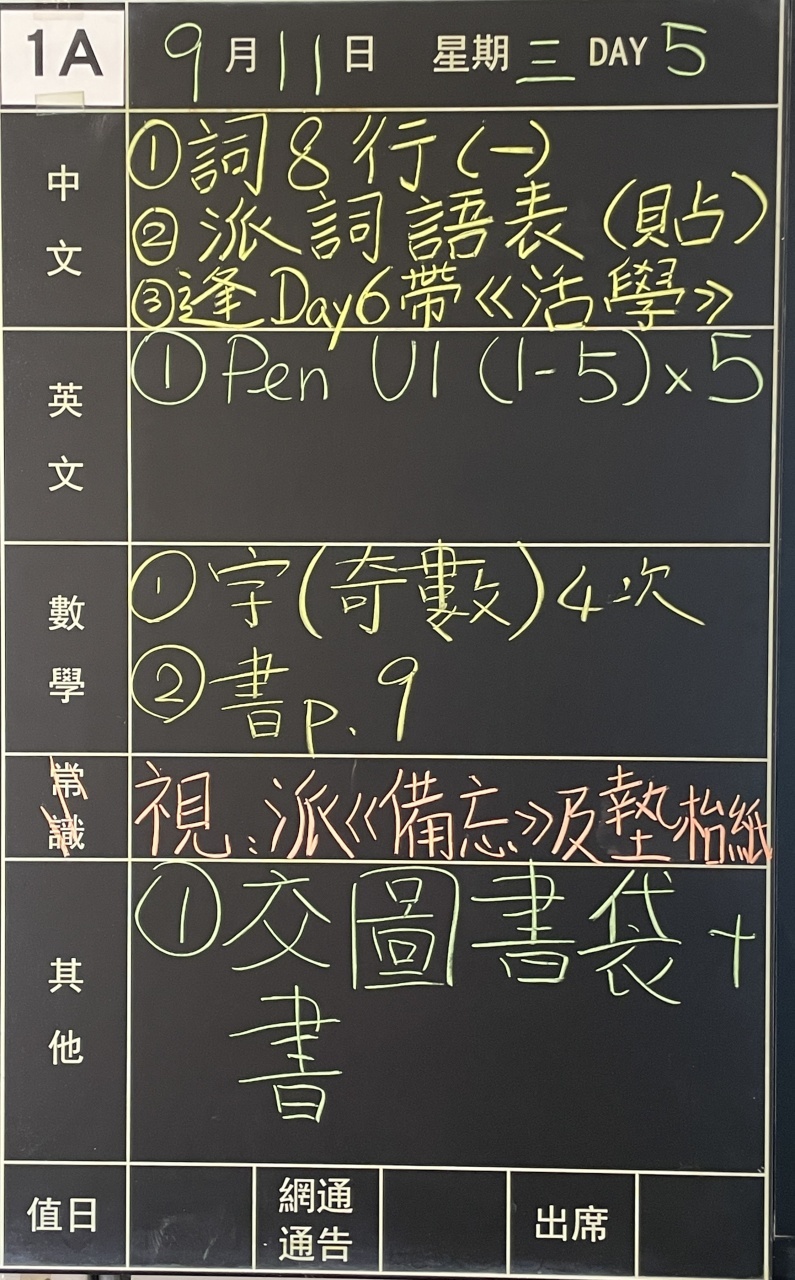 1A 9月11日 星期三 DAY 5
中文 ①詞8行(一)
②派詞語表(貼)
③逢Day6帶《活學》
英文 ①Pen U1 (1-5)×5
數學 ①字(奇數)4次
②書p.9
常識 視:派《備忘》及墊枱紙
其他 ①交圖書袋+
書
值日 網通通告 出席